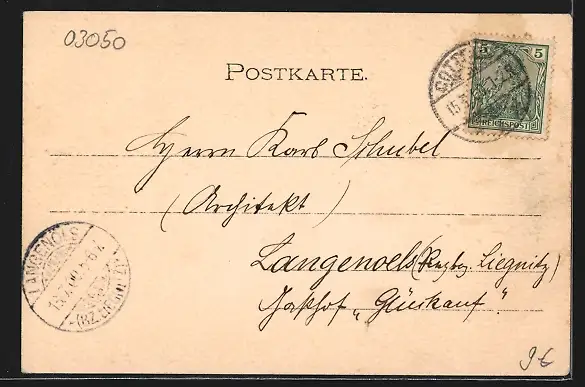 03050
POSTKARTE.
5 5
REICHSPOST
Herrn Karl Schubel
(Architekt)
Langenoels (Rngbz. Liegnitz)
Gasthof „Glückauf".
LANGENOELS
15.7.00. 5-6 N.
(BZ. LIEGNITZ)
9€